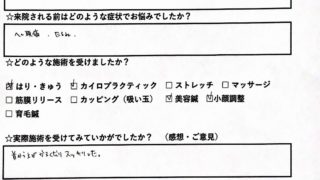 ☆来院される前はどのような症状でお悩みでしたか？
頭痛
☆どのような施術を受けましたか？
☑ はり・きゅう ☑ カイロプラクティック ☐ ストレッチ ☐ マッサージ
☐ 筋膜リリース ☐ カッピング（吸い玉） ☑ 美容鍼 ☑ 小顔調整
☐ 育毛鍼
☆実際施術を受けてみていかがでしたか？ （感想・ご意見）
スッキリした。